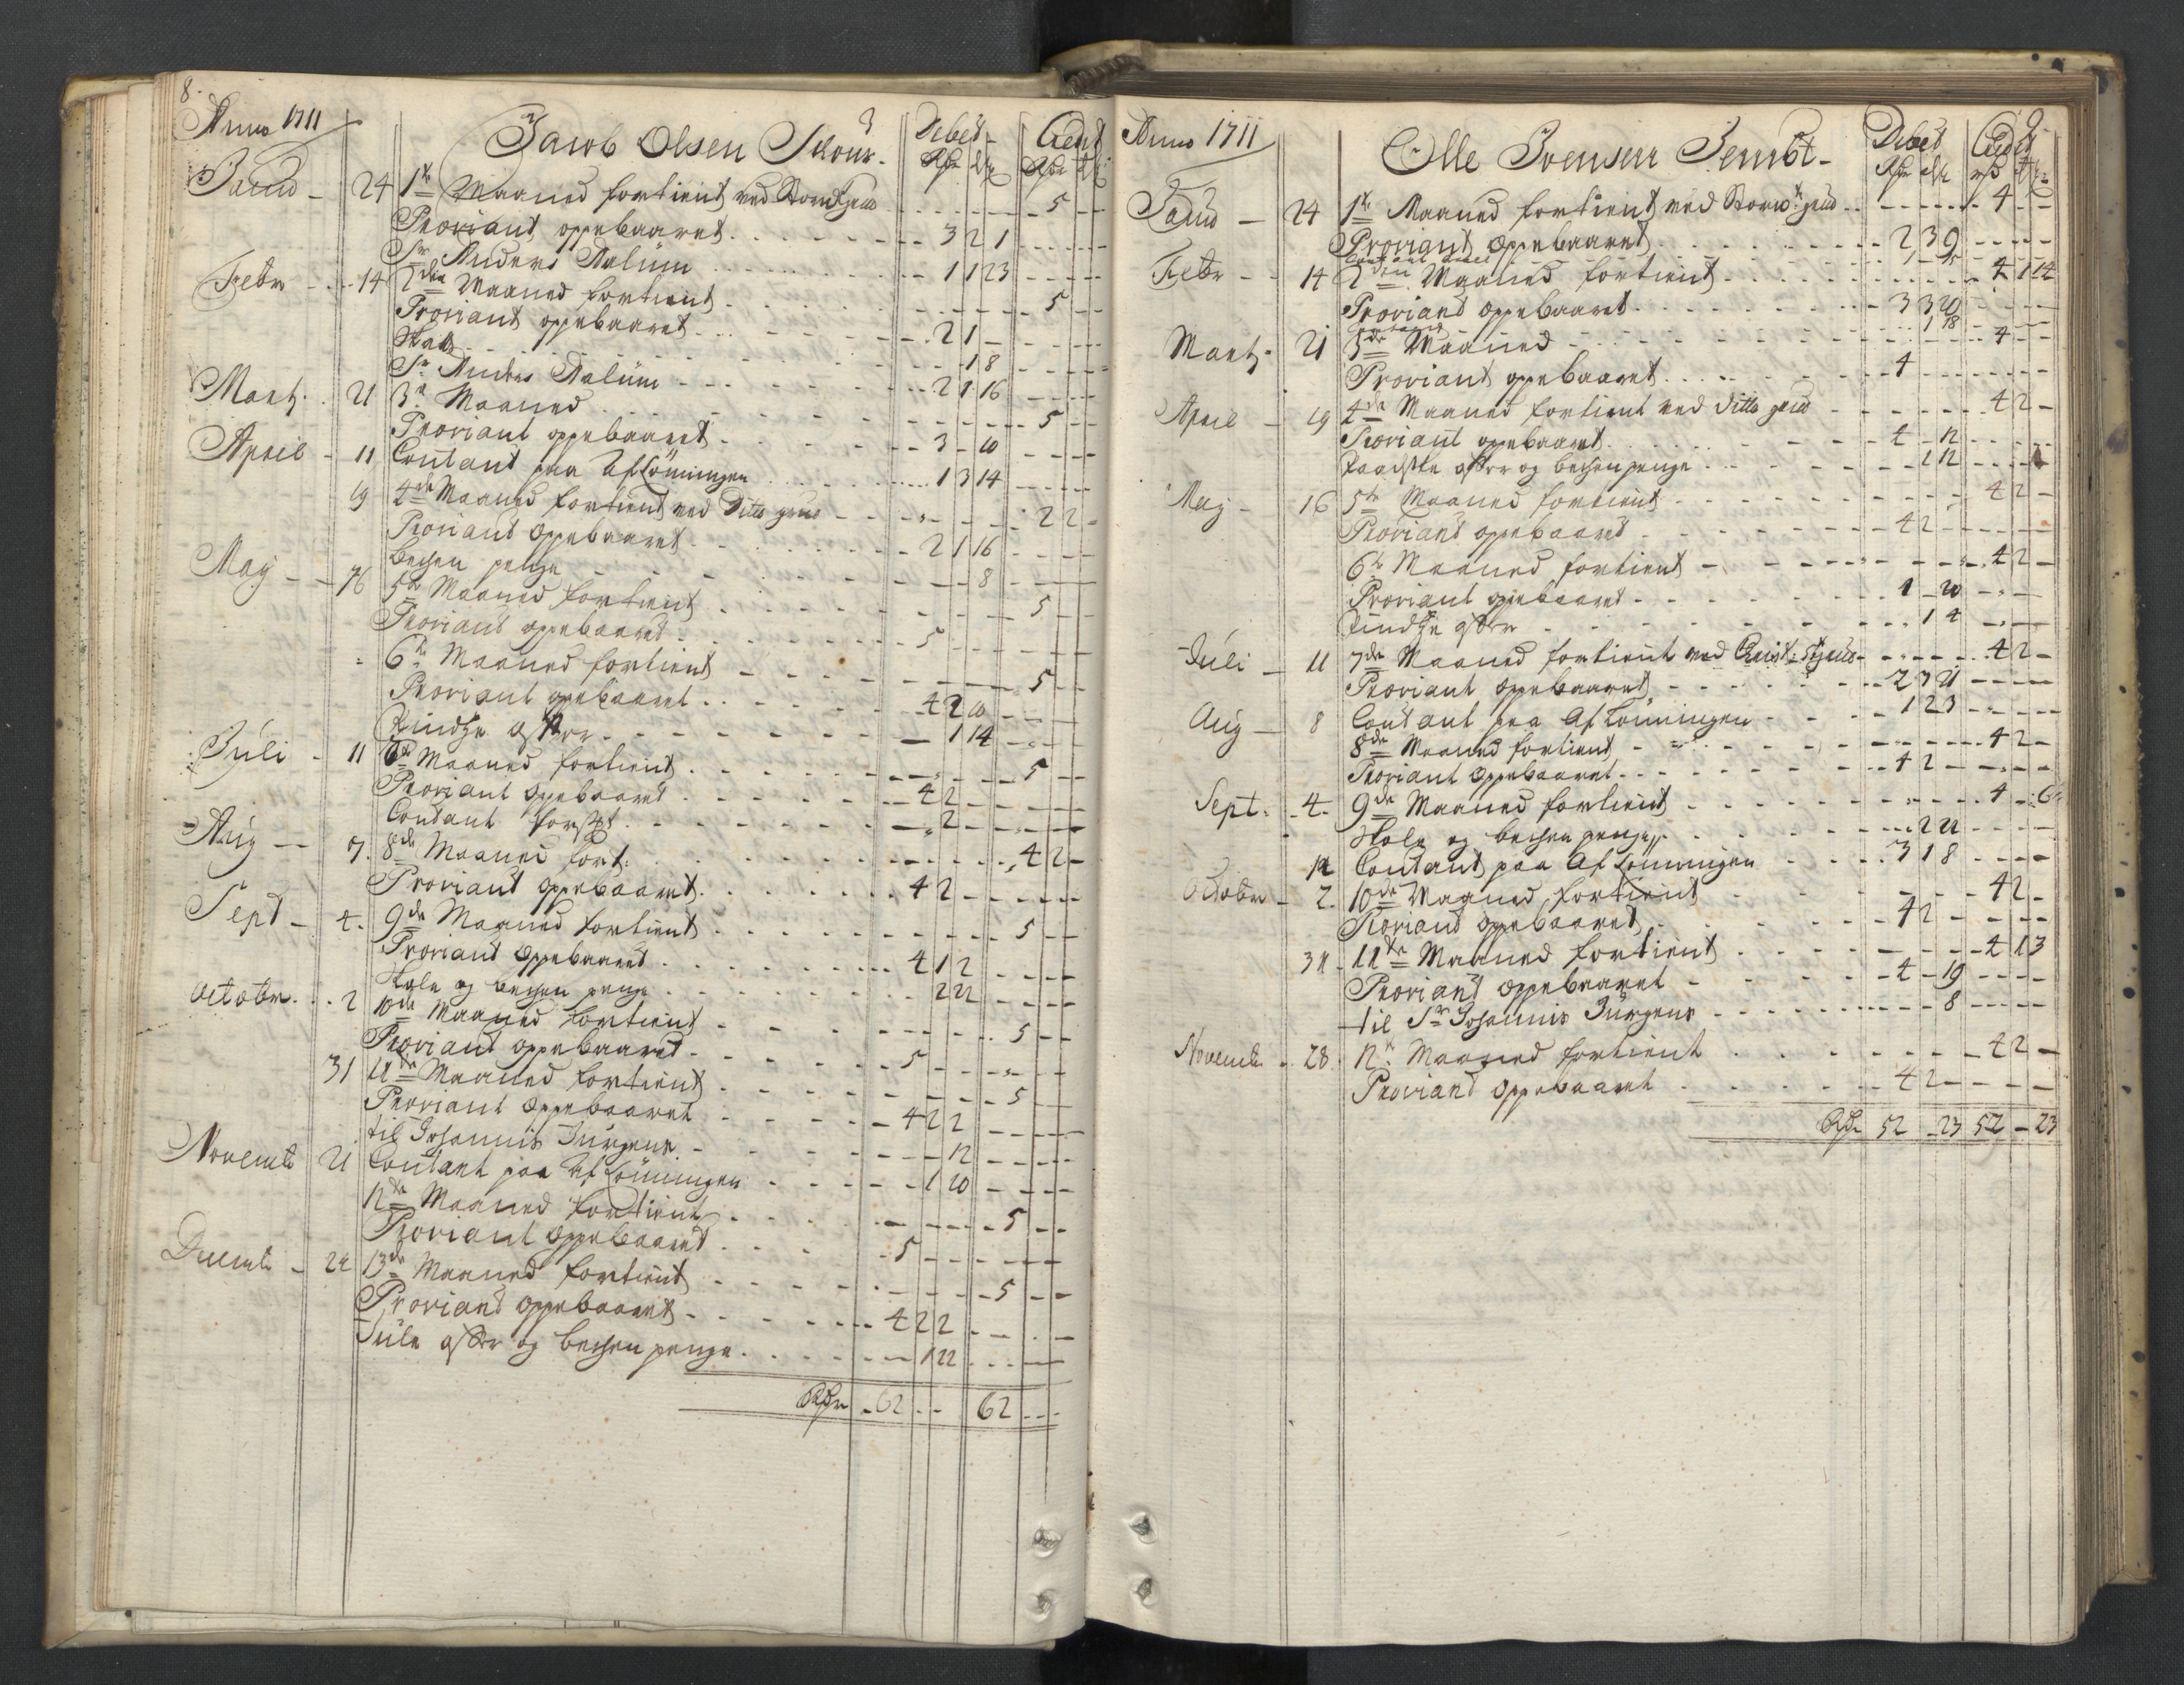 8.
Anno 1711
Jacob Olsen Skour.
Debet Credit
Rdr
Janu - 24 1te Maaned fortient ved Stords grue 5 - -
Proviant oppebaaret 3 2 1
Sr Anders Dalüm 1 1 23
Febr - 14 2den Maaned fortient 5 - -
Proviant oppebaaret 2 1 -
Skatt 1 8
Sr Anders Dalüm 2 1 16
Mart. 21 3de Maaned 5 - -
Proviant oppebaaret 3 - 10
April - 11 Contant paa Aflöningen 1 3 14
19 4de Maaned fortient ved Ditto grue 2 2 -
Proviant oppebaaret 2 1 16
Bechen penge 8
Maÿ - 16 5te Maaned fortient 5 - -
Proviant oppebaaret 5 - -
6te Maaned fortient 5 - -
Proviant oppebaaret 4 2 10
- 1 14
Juli - 11 7de Maaned fortient 5 - -
Proviant oppebaaret 4 2 -
Contant - 2 -
Aug - 7. 8de Maaned fort: 4 2 -
Proviant oppebaaret 4 2 -
Sept - 4. 9de Maaned fortient 5 - -
Proviant oppebaaret 4 1 2
og bechen penge 2 22
Octobr. 2 10de Maaned fortient 5 - -
Proviant oppebaaret 5 - -
31 11te Maaned fortient 5 - -
Proviant oppebaaret 4 2 2
til Johannis Jürgens 12
Novemb 21 Contant paa Aflöningen 1 20
12te Maaned fortient 5 - -
Proviant oppebaaret 5 - -
Decemb - 24 13de Maaned fortient 5 - -
Proviant oppebaaret 4 2 2
Jule offer og bechen penge 1 22
Rdr 62 - - 62 - -
9.
Anno 1711
Olle Svensen Sembt -
Debet Credit
Janu - 24 1te Maaned fortient ved Stords grue 4 - -
Proviant oppebaaret 2 3 9
Febr - 14 2den Maaned fortient 4 1 14
Proviant oppebaaret 3 3 20
1 18
Mart. 21 3de Maaned 4 - -
Proviant oppebaaret 4
April - 19 4de Maaned fortient ved ditto grue 4 2 -
Proviant oppebaaret 4 - 12
Paaske offer og bechenpenge 1 12
Maÿ - 16 5te Maaned fortient 4 2 -
Proviant oppebaaret 4 2 -
6te Maaned fortient 4 2 -
Proviant oppebaaret 1 - 20
1 4
Juli - 11 7de Maaned fortient ved grue 4 2 -
Proviant oppebaaret 2 3 21
Aug - 8 Contant paa Aflöningen 1 2 3
8de Maaned fortient 4 2 -
Proviant oppebaaret 4 2 -
Sept. 4. 9de Maaned fortient 4 - 6
og bechen penge 2 22
12 Contant paa Aflönningen 3 1 8
Octobr - 2. 10de Maaned fortient 4 2 -
Proviant oppebaaret 4 2 -
31. 11te Maaned fortient 4 1 3
Proviant oppebaaret 4 - 19
til Sr Johannis Jürgens 8
Novemb - 28. 12te Maaned fortient 4 2 -
Proviant oppebaaret 4 2 -
Rdr 52 - 23 52 - 23